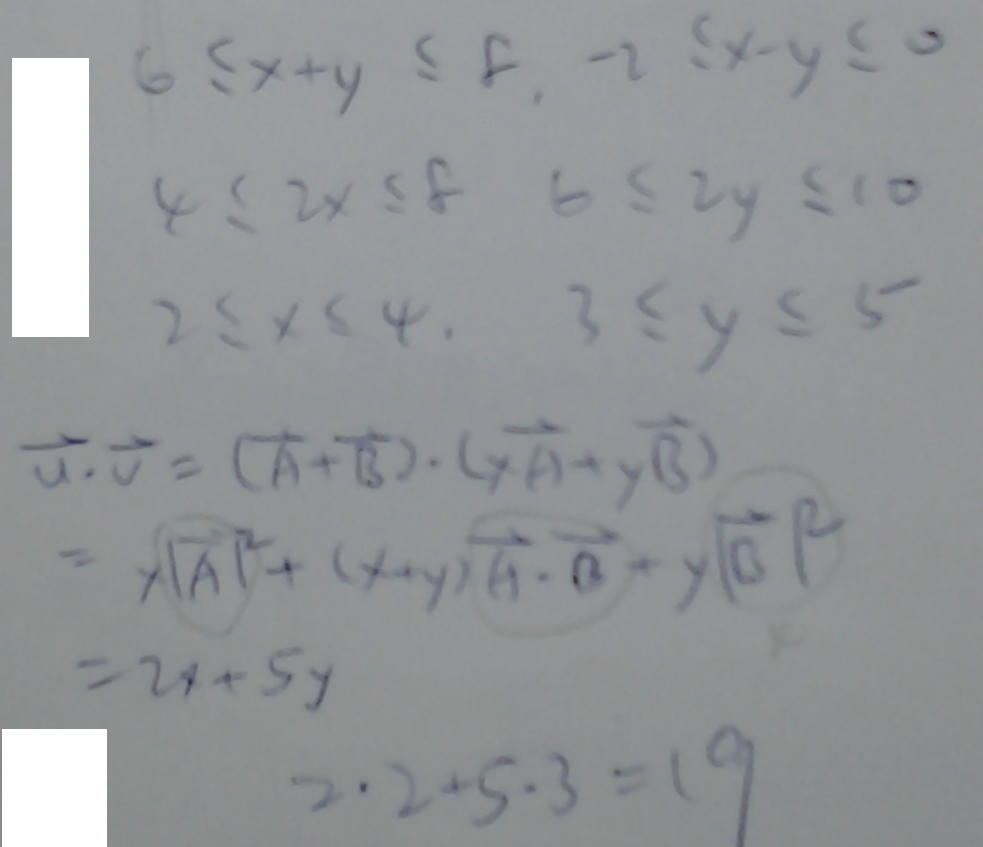 6 ≤ x+y ≤ 8, -2 ≤ x-y ≤ 0
4 ≤ 2x ≤ 8 6 ≤ 2y ≤ 10
2 ≤ x ≤ 4. 3 ≤ y ≤ 5
u⃗·v⃗ = (A⃗+B⃗)·(xA⃗+yB⃗)
= x|A⃗|²+ (x+y)A⃗·B⃗ + y|B⃗|²
= 2x+5y
2·2+5·3=19